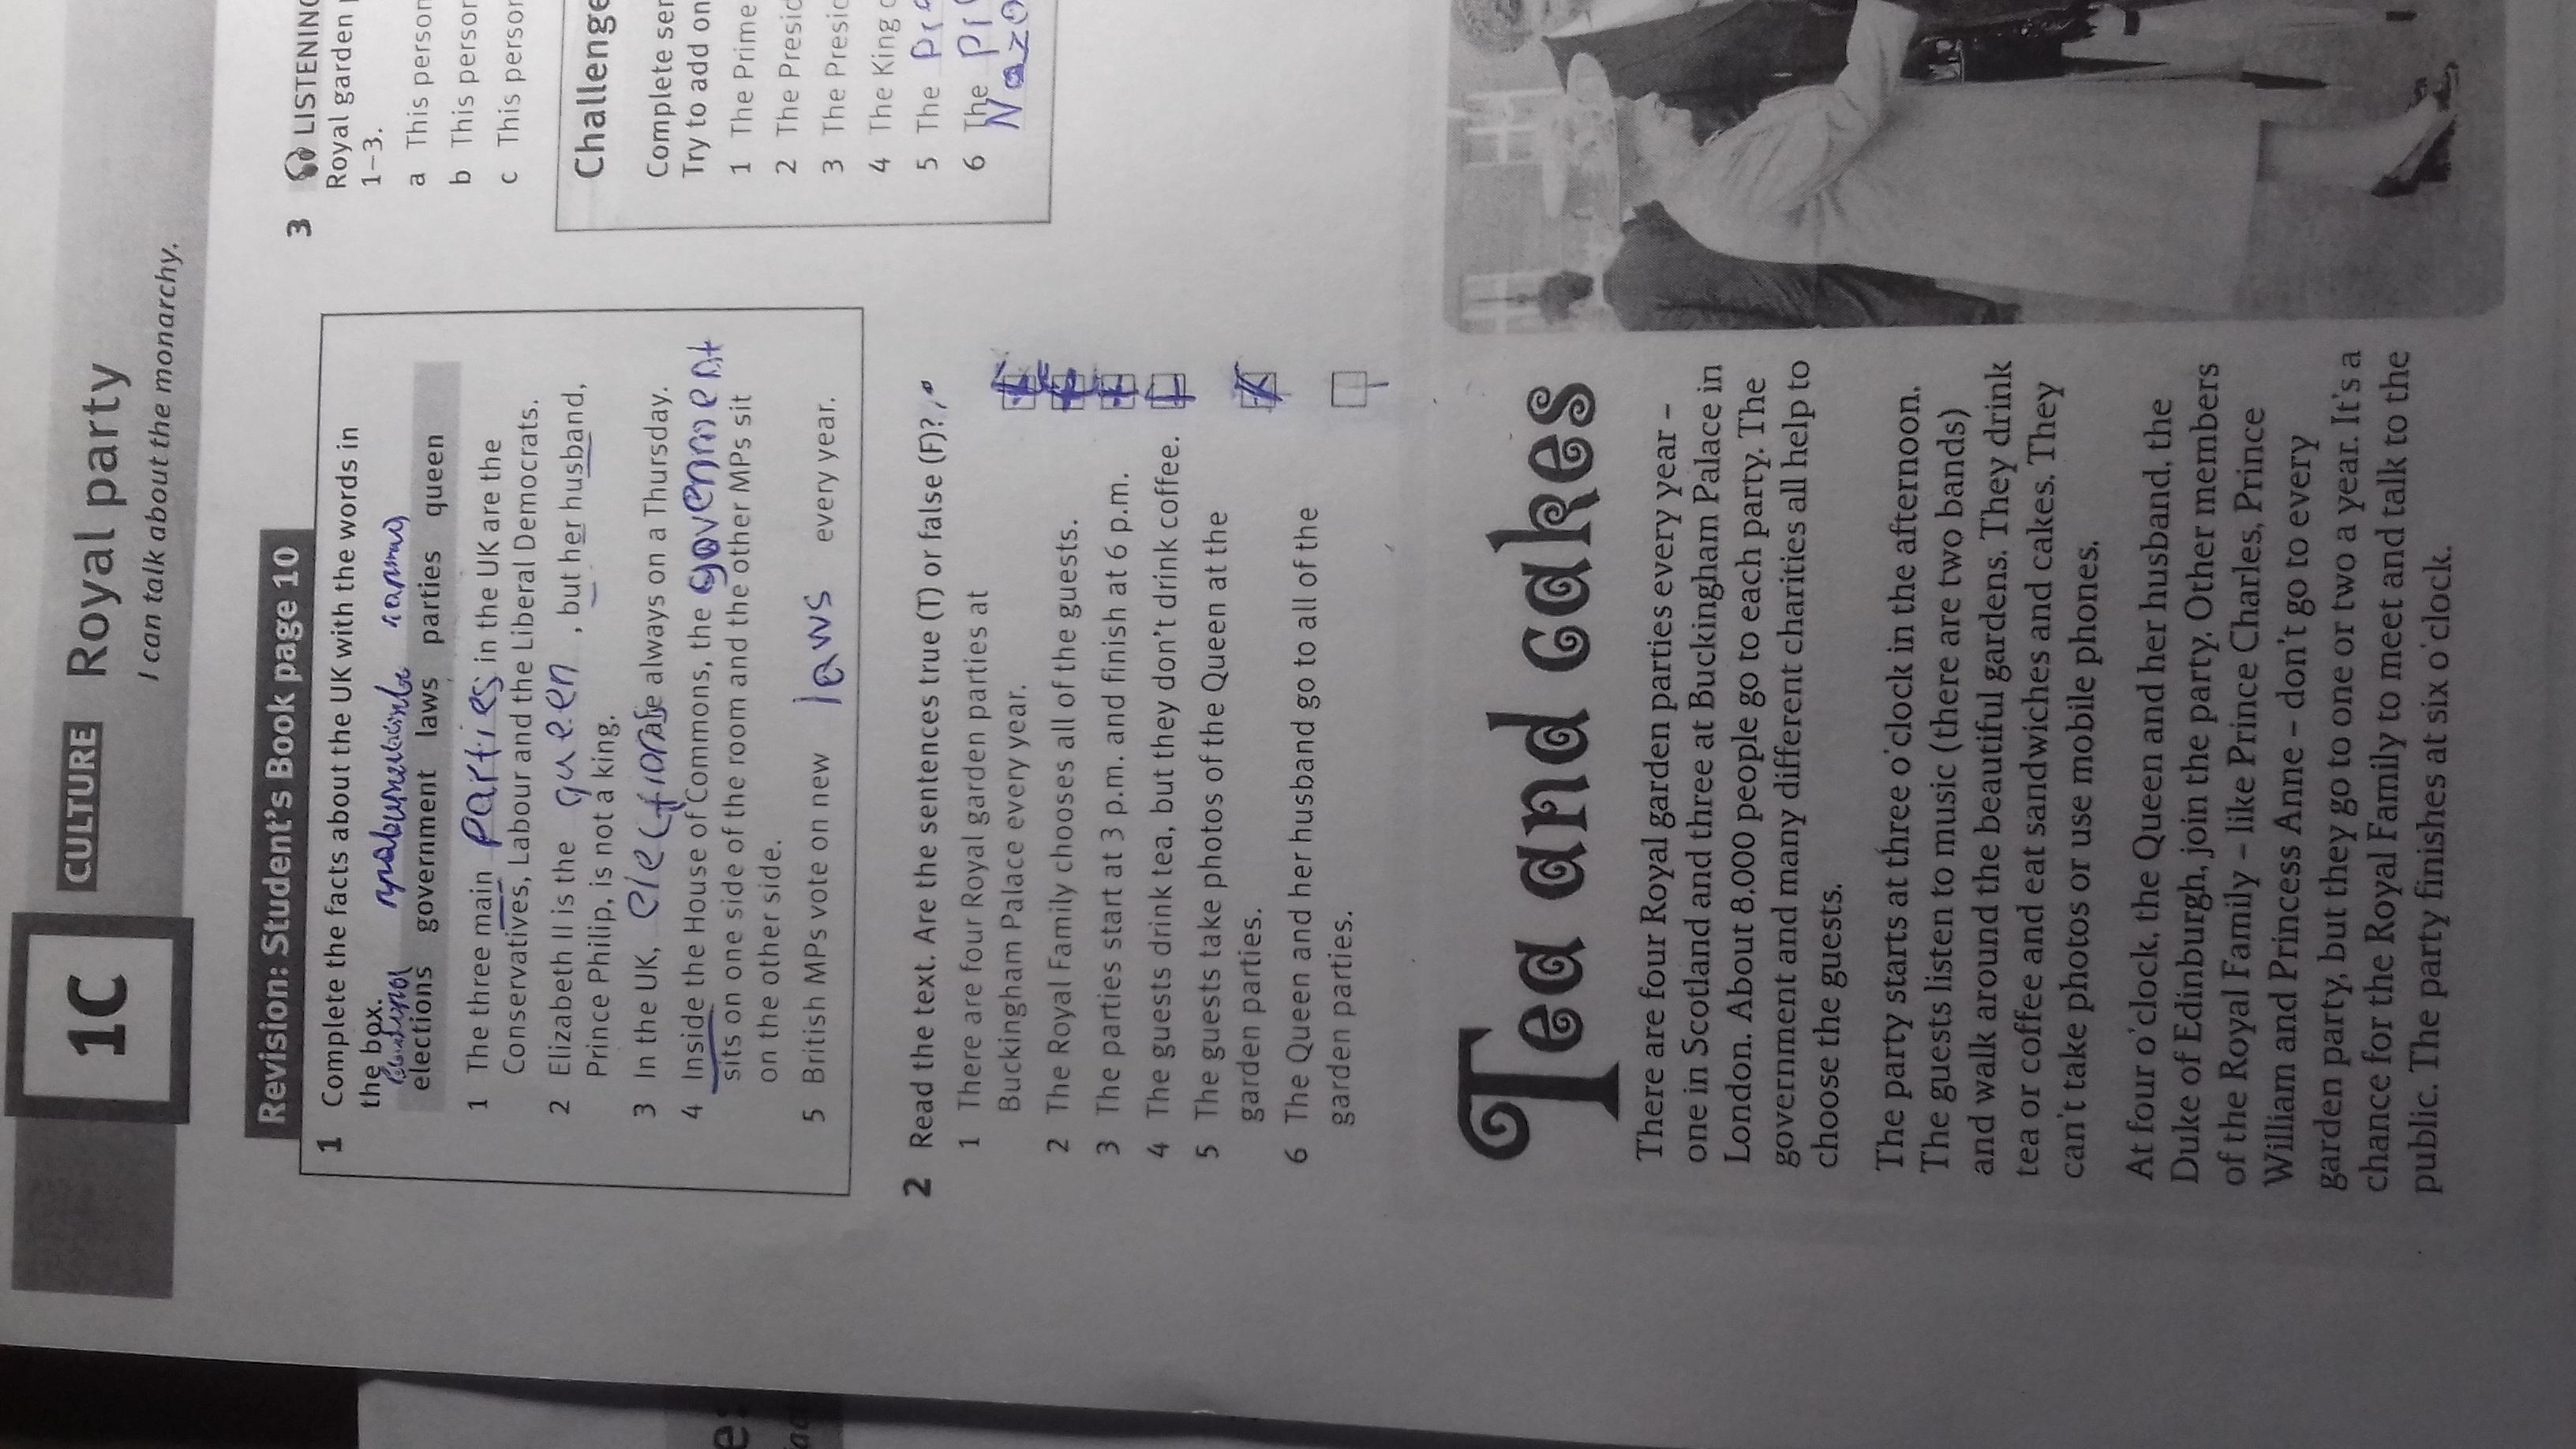 1C CULTURE Royal party
I can talk about the monarchy.
Revision: Student's Book page 10
1 Complete the facts about the UK with the words in
the box.
elections government laws parties queen
1 The three main parties in the UK are the
Conservatives, Labour and the Liberal Democrats.
2 Elizabeth II is the queen, but her husband,
Prince Philip, is not a king.
3 In the UK, are always on a Thursday.
4 Inside the House of Commons, the government
sits on one side of the room and the other MPs sit
on the other side.
5 British MPs vote on new laws every year.
2 Read the text. Are the sentences true (T) or false (F)?
1 There are four Royal garden parties at
Buckingham Palace every year.
2 The Royal Family chooses all of the guests.
3 The parties start at 3 p.m. and finish at 6 p.m.
4 The guests drink tea, but they don't drink coffee.
5 The guests take photos of the Queen at the
garden parties.
6 The Queen and her husband go to all of the
garden parties.
Tea and cakes
There are four Royal garden parties every year –
one in Scotland and three at Buckingham Palace in
London. About 8,000 people go to each party. The
government and many different charities all help to
choose the guests.
The party starts at three o'clock in the afternoon.
The guests listen to music (there are two bands)
and walk around the beautiful gardens. They drink
tea or coffee and eat sandwiches and cakes. They
can't take photos or use mobile phones.
At four o'clock, the Queen and her husband, the
Duke of Edinburgh, join the party. Other members
of the Royal Family – like Prince Charles, Prince
William and Princess Anne – don't go to every
garden party, but they go to one or two a year. It's a
chance for the Royal Family to meet and talk to the
public. The party finishes at six o'clock.
3 LISTENING
Royal garden
1–3.
a This person
b This person
c This person
Challenge
Complete
Try to add
1 The Prime
2 The
3 The
4 The King
5 The
6 The